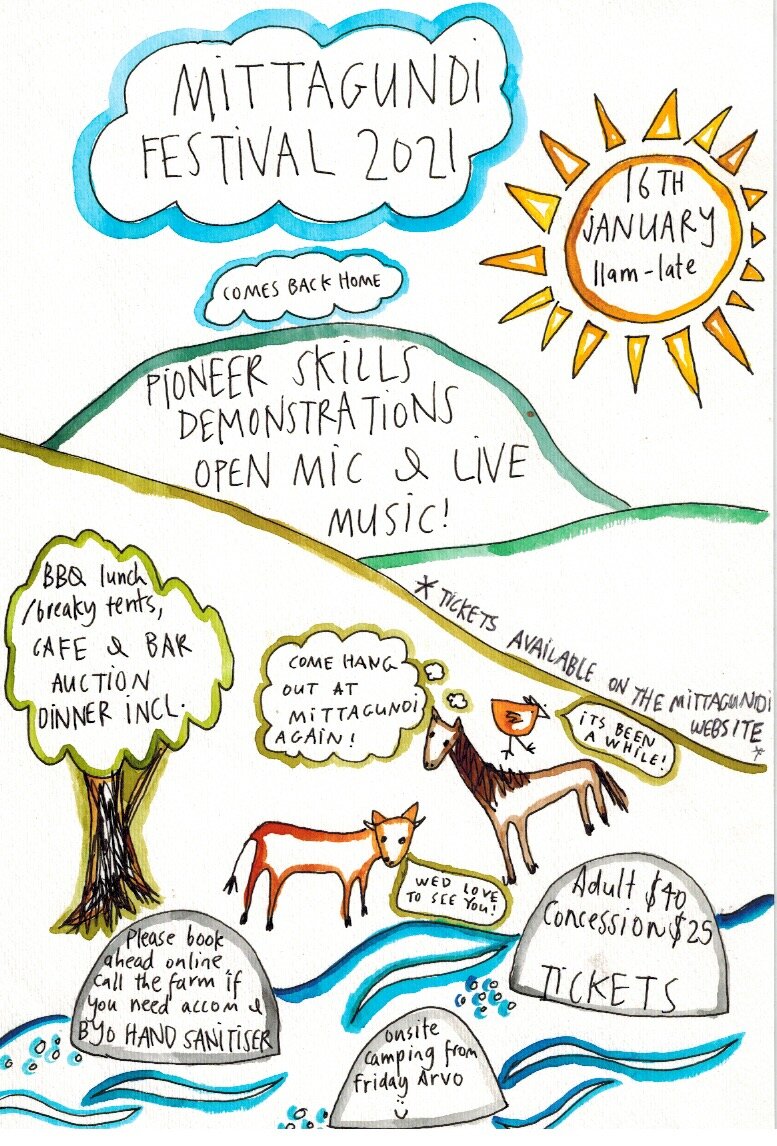 MITTAGUNDI
FESTIVAL 2021
16TH
JANUARY
11am-late
COMES BACK HOME
PIONEER SKILLS
DEMONSTRATIONS
OPEN MIC & LIVE
MUSIC!
* TICKETS AVAILABLE ON THE MITTAGUNDI
WEBSITE *
BBQ lunch
/breaky tents,
CAFE & BAR
AUCTION
DINNER INCL.
COME HANG
OUT AT
MITTAGUNDI
AGAIN!
ITS BEEN
A WHILE!
WED LOVE
TO SEE YOU!
Adult $40
Concession $25
TICKETS
Please book
ahead online
call the farm if
you need accom &
BYO HAND SANITISER
onsite
camping from
friday Arvo